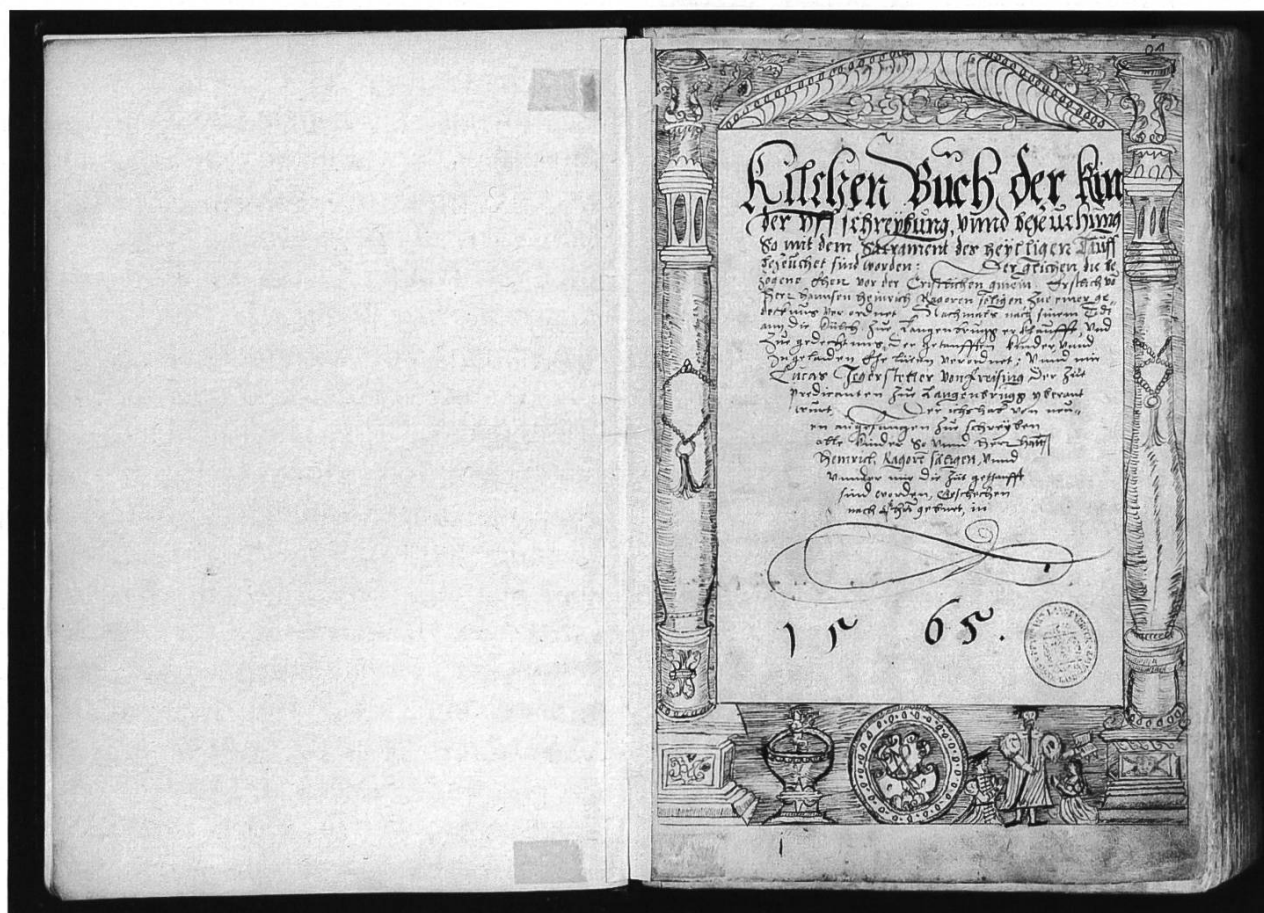 Kilchen Buch der Kin
der vff schreÿbung, vnnd bezeüchnüng
So mit dem Sacrament des heÿlligen Tauff
bezeüchet sind worden: Der gleichen die be
zogene Ehen vor der Cristlichen gmein. Erstlich vō
Herr Hannsen Heinrich Ragoren seligen zue einer ge-
decktnus ver ordnet Nachmals nach sinem Todt
ann die Kilch zur Langenbrugg er khaufft, vnd
Zue gedechtnus, der getaufften kinder vnnd
Ehe verordnet: vnnd mir
Lucas Jegerstetter von freising der zÿt
predicanten zue Langenbrugg vberant
wurt. Der ichs hab von neu-
en angefangen zue schreyben
alle kinder so vnnd Herr Hans
Heinrich Ragorē säligen, vnnd
vnnder mir die zÿt getaufft
sind worden, Geschechen
nach geburt, in
1565.
1